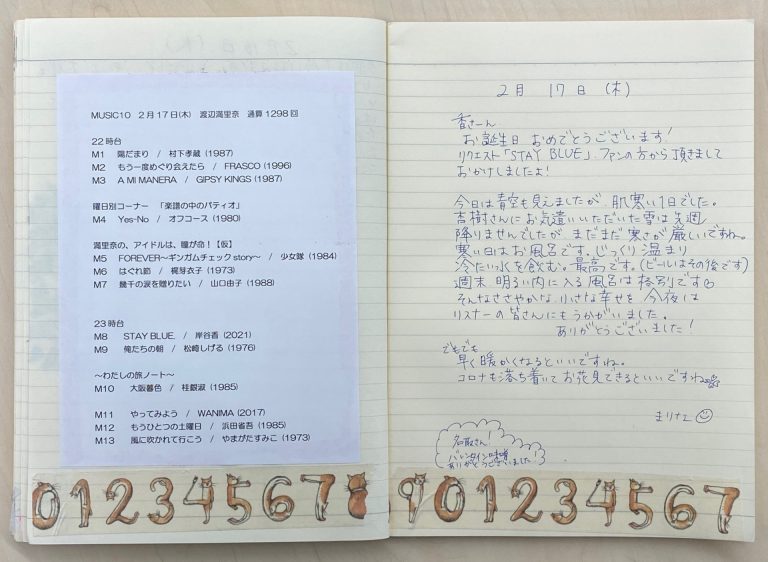 MUSIC10 2月17日(木) 渡辺満里奈 通算1298回
22時台
M1 陽だまり / 村下孝蔵 (1987)
M2 もう一度めぐり会えたら / FRASCO (1996)
M3 A MI MANERA / GIPSY KINGS (1987)
曜日別コーナー 「楽譜の中のパティオ」
M4 Yes-No / オフコース (1980)
満里奈の、アイドルは、瞳が命！【仮】
M5 FOREVER～ギンガムチェック story～ / 少女隊 (1984)
M6 はぐれ節 / 梶芽衣子 (1973)
M7 幾千の涙を贈りたい / 山口由子 (1988)
23時台
M8 STAY BLUE. / 岸谷香 (2021)
M9 俺たちの朝 / 松崎しげる (1976)
～わたしの旅ノート～
M10 大阪暮色 / 桂銀淑 (1985)
M11 やってみよう / WANIMA (2017)
M12 もうひとつの土曜日 / 浜田省吾 (1985)
M13 風に吹かれて行こう / やまがたすみこ (1973)
0 1 2 3 4 5 6 7 8
2月 17日 (木)
香さーん
お誕生日 おめでとうございます!
リクエスト「STAY BLUE」ファンの方から頂きまして
おかけしましたよ!
今日は青空も見えましたが、肌寒い1日でした。
吉樹さんにお気遣いいただいた雪は先週
降りませんでしたが、まだまだ寒さが厳しいですね。
寒い日はお風呂です。じっくり温まり
冷たい水を飲む。最高です。(ビールはその後です)
週末、明るい内に入る風呂は格別です
そんなささやかな小さな幸せを 今夜は
リスナーの皆さんにもうかがいました。
ありがとうございました!
でもでも
早く暖かくなるといいですね。
コロナも落ち着いて お花見できるといいですね
まりな
名取さん!
バレンタイン味噌
ありがとうございました!
9 0 1 2 3 4 5 6 7